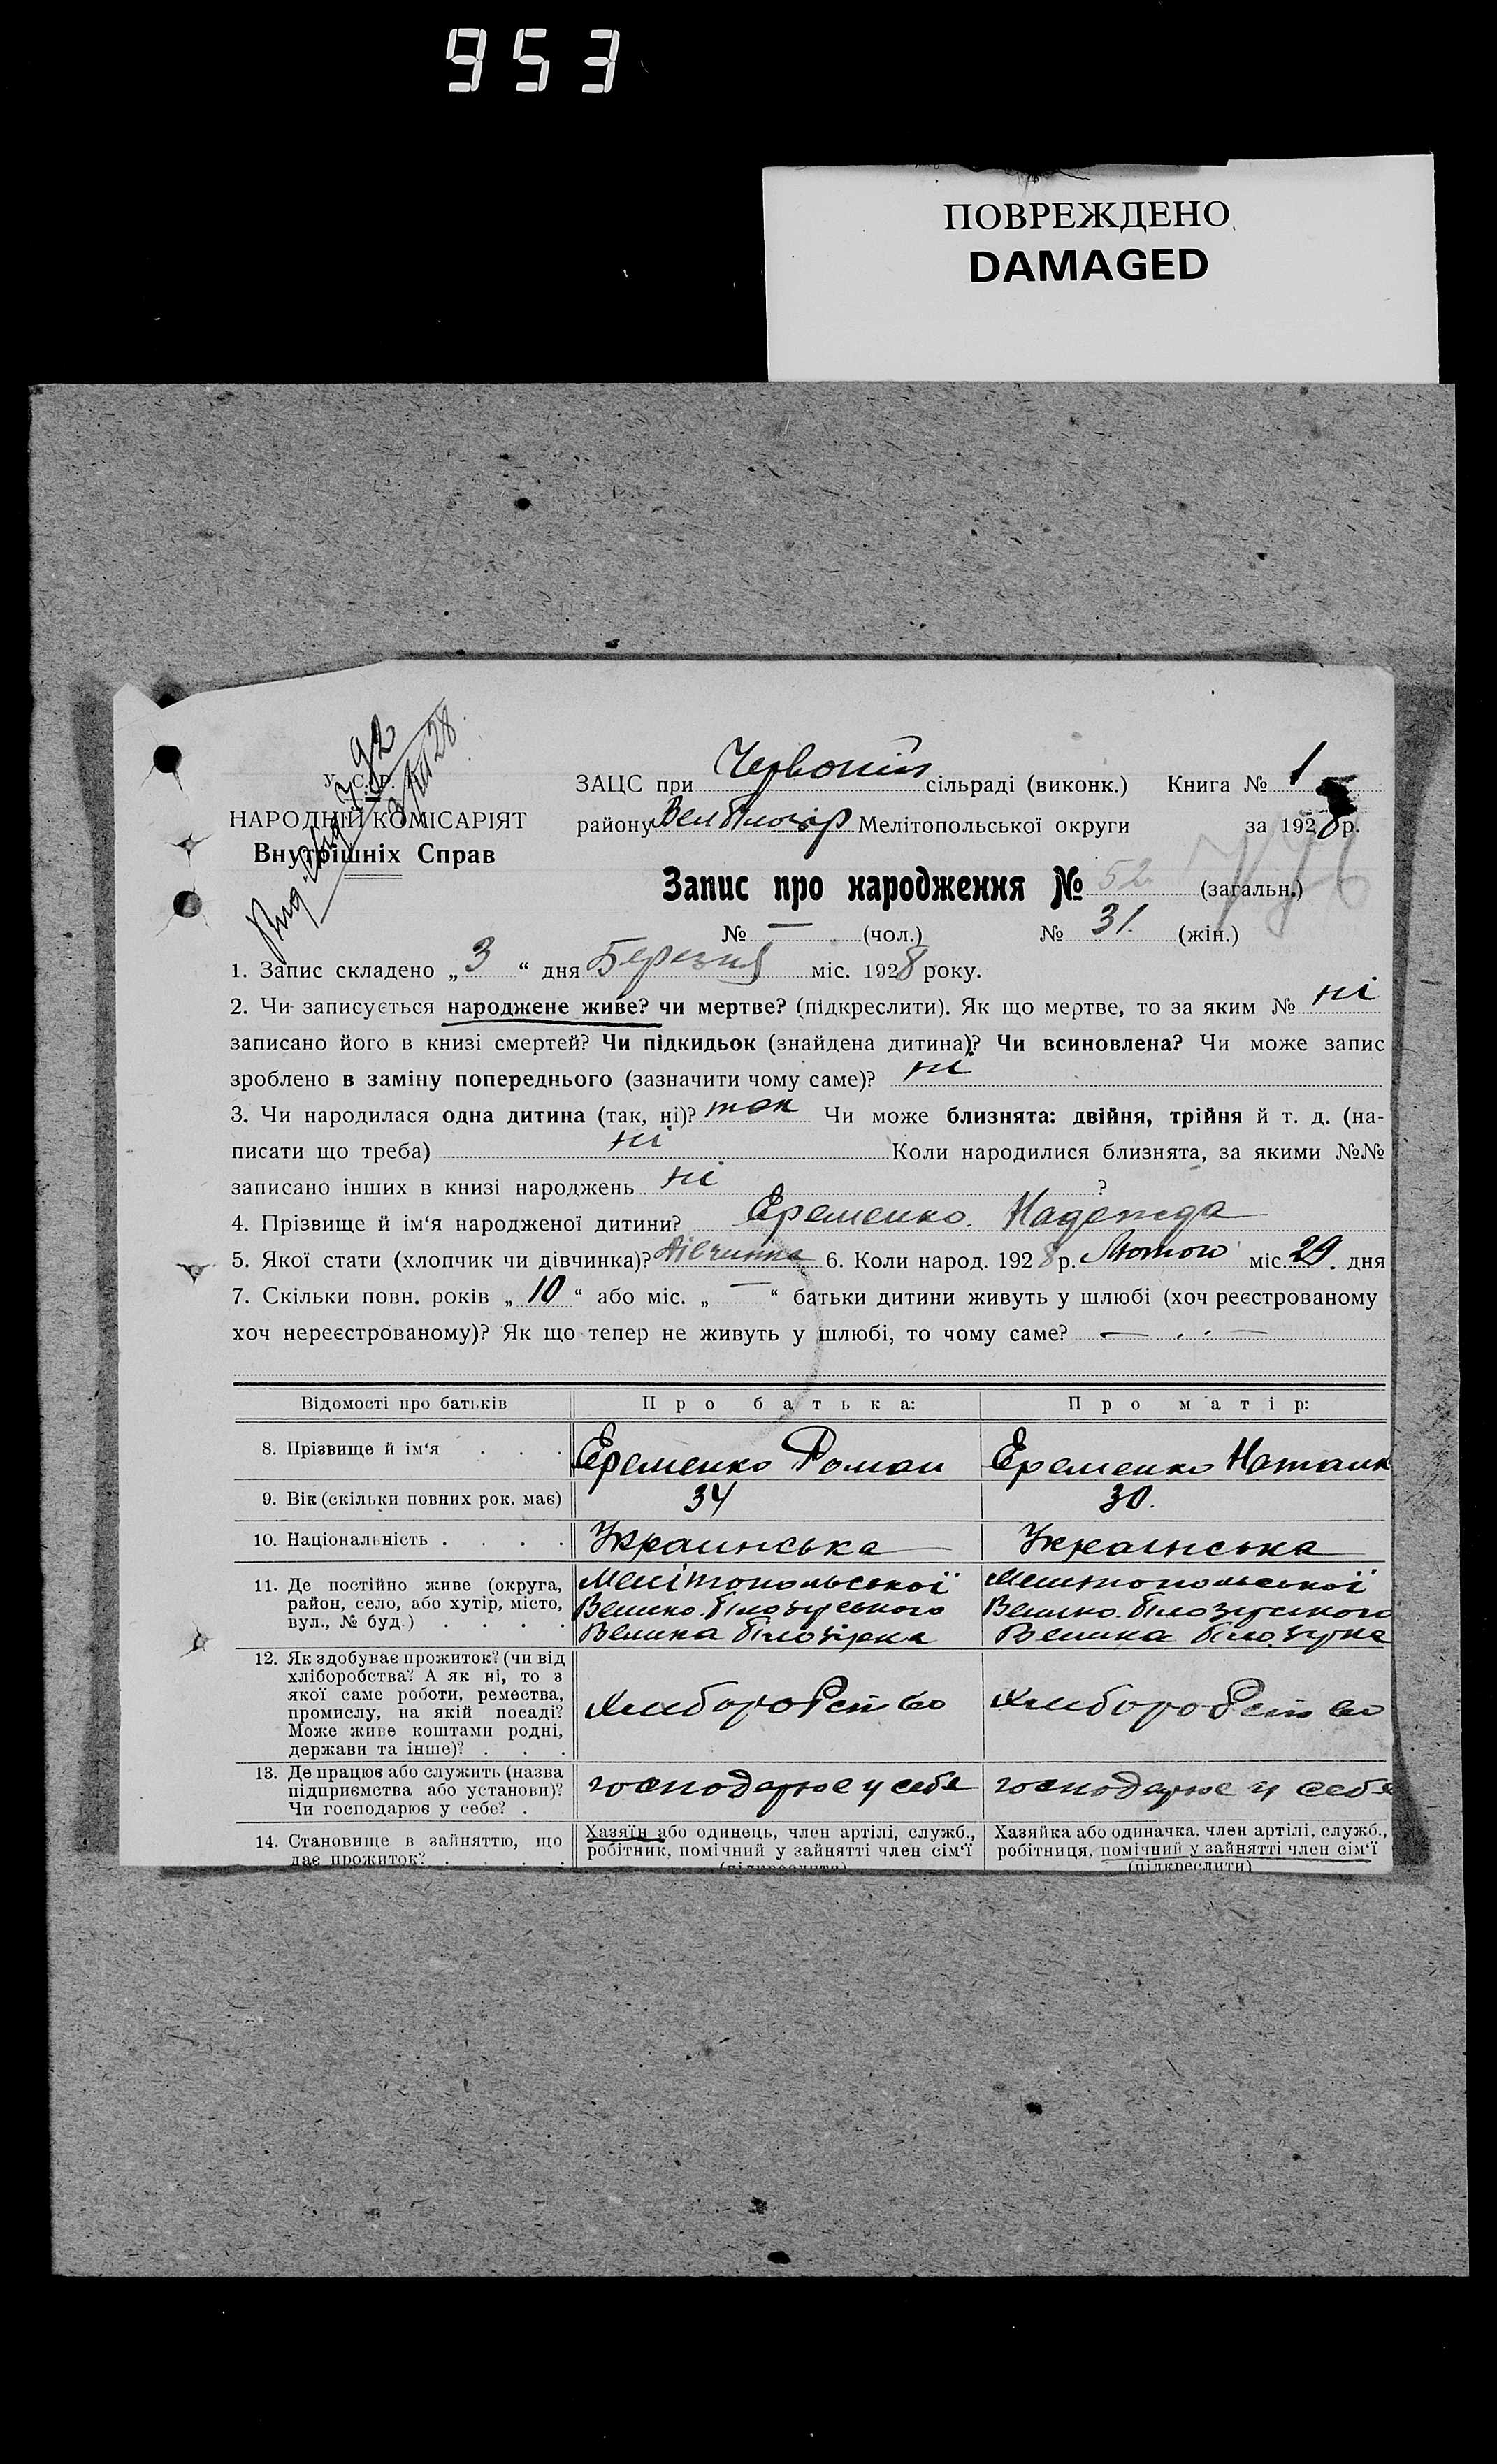 953
ПОВРЕЖДЕНО
DAMAGED
У. С. Р. Р.
НАРОДНІЙ КОМІСАРІЯТ
Внутрішніх Справ
92
ЗАЦС при Червоній сільраді (виконк.) Книга № 1
району Вел Білозір Мелітопольської округи за 1928 р.
Запис про народження № 52 (загальн.)
№ — (чол.) № 31 (жін.)
1. Запис складено „ 3 “ дня Березня міс. 1928 року.
2. Чи записується народжене живе? чи мертве? (підкреслити). Як що мертве, то за яким № ні
записано його в книзі смертей? Чи підкидьок (знайдена дитина)? Чи всиновлена? Чи може запис
зроблено в заміну попереднього (зазначити чому саме)? ні
3. Чи народилася одна дитина (так, ні)? так Чи може близнята: двійня, трійня й т. д. (на-
писати що треба) ні Коли народилися близнята, за якими №№
записано інших в книзі народжень ні ?
4. Прізвище й ім‘я народженої дитини? Еременко Надежда
5. Якої стати (хлопчик чи дівчинка)? Дівчинка 6. Коли народ. 1928 р. Лютого міс. 29. дня
7. Скільки повн. років „ 10 “ або міс. „ — “ батьки дитини живуть у шлюбі (хоч реєстрованому
хоч нереєстрованому)? Як що тепер не живуть у шлюбі, то чому саме? —
Відомості про батьків Про батька: Про матір:
8. Прізвище й ім‘я . . . Еременко Роман Еременко Наталк
9. Вік (скільки повних рок. має) 34 30.
10. Національність . . . . Украинська Украинська
11. Де постійно живе (округа, Мелітопольської Мелітопольської
район, село, або хутір, місто, Велико.білозірського Велико.білозірского
вул., № буд.) . . . . Велика білозірка Велика білозірка
12. Як здобуває прожиток? (чи від
хліборобства? А як ні, то з
якої саме роботи, ремества,
промислу, на якій посаді? Хлиборобство Хлиборобство
Може живе коштами родні,
держави та інше)? . . .
13. Де працює або служить (назва
підприємства або установи)? господарює у себе господарює у себе
Чи господарює у себе? .
14. Становище в зайняттю, що Хазяїн або одинець, член артілі, служб., Хазяйка або одиначка, член артілі, служб.,
дає прожиток? . . . . робітник, помічний у зайнятті член сім‘ї робітниця, помічний у зайнятті член сім‘ї
(підкреслити) (підкреслити)